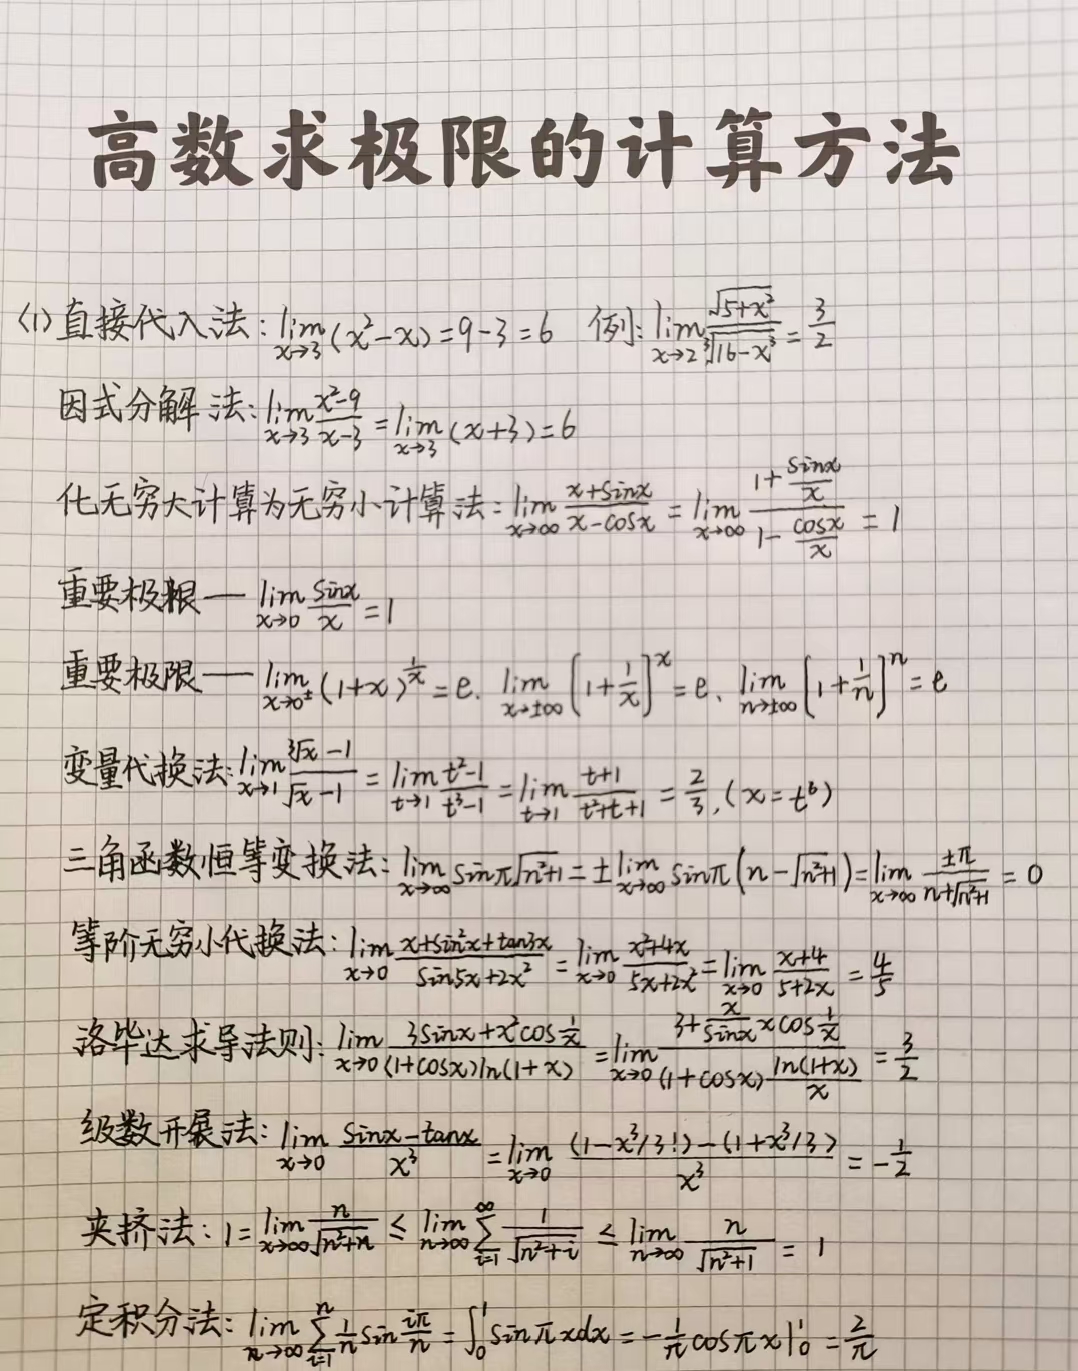 高数求极限的计算方法
(1) 直接代入法: lim_{x→3} (x²-x) = 9-3 = 6 例: lim_{x→2} √(5+x²) / ∛(16-x³) = 3/2
因式分解法: lim_{x→3} (x²-9)/(x-3) = lim_{x→3} (x+3) = 6
化无穷大计算为无穷小计算法: lim_{x→∞} (x+sinx)/(x-cosx) = lim_{x→∞} (1+sinx/x)/(1-cosx/x) = 1
重要极限— lim_{x→0} sinx/x = 1
重要极限— lim_{x→0±} (1+x)^{1/x} = e、 lim_{x→±∞} [1+1/x]^x = e、 lim_{n→±∞} [1+1/n]^n = e
变量代换法: lim_{x→1} (∛x-1)/(√x-1) = lim_{t→1} (t²-1)/(t³-1) = lim_{t→1} (t+1)/(t²+t+1) = 2/3, (x=t⁶)
三角函数恒等变换法: lim_{x→∞} sinπ√(n²+1) = ± lim_{x→∞} sinπ(n-√(n²+1)) = lim_{x→∞} ±π/(n+√(n²+1)) = 0
等阶无穷小代换法: lim_{x→0} (x+sin²x+tan3x)/(sin5x+2x²) = lim_{x→0} (x²+4x)/(5x+2x²) = lim_{x→0} (x+4)/(5+2x) = 4/5
洛毕达求导法则: lim_{x→0} (3sinx+x²cos(1/x))/((1+cosx)ln(1+x)) = lim_{x→0} (3+(x/sinx)xcos(1/x))/((1+cosx)(ln(1+x)/x)) = 3/2
级数开展法: lim_{x→0} (sinx-tanx)/x³ = lim_{x→0} ((1-x³/3!)-(1+x³/3))/x³ = -1/2
夹挤法: 1 = lim_{x→∞} n/√(n²+n) ≤ lim_{n→∞} ∑_{i=1}^{∞} 1/√(n²+i) ≤ lim_{n→∞} n/√(n²+1) = 1
定积分法: lim_{n→∞} ∑_{i=1}^{n} (1/n) sin(iπ/n) = ∫_0^1 sinπxdx = -(1/π)cosπx|_0^1 = 2/π